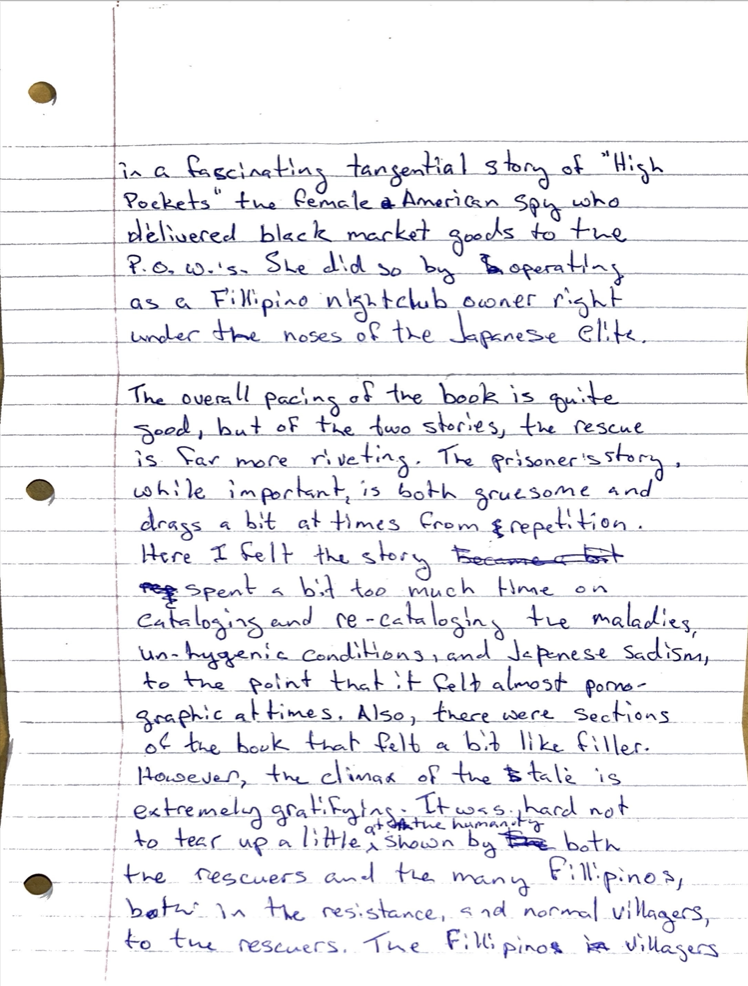 in a fascinating tangential story of "High
Pockets" the female American spy who
delivered black market goods to the
P.O.W.'s. She did so by operating
as a Fillipino nightclub owner right
under the noses of the Japanese elite.
The overall pacing of the book is quite
good, but of the two stories, the rescue
is far more riveting. The prisoner's story,
while important, is both gruesome and
drags a bit at times from repetition.
Here I felt the story became a bit
rep spent a bit too much time on
cataloging and re-cataloging the maladies,
un-hygenic conditions, and Japenese sadism,
to the point that it felt almost porno-
graphic at times. Also, there were sections
of the book that felt a bit like filler.
However, the climax of the tale is
extremely gratifying. It was hard not
at the humanity
to tear up a little shown by both
the rescuers and the many Fillipinos,
both in the resistance, and normal villagers,
to the rescuers. The Fillipinos in villagers